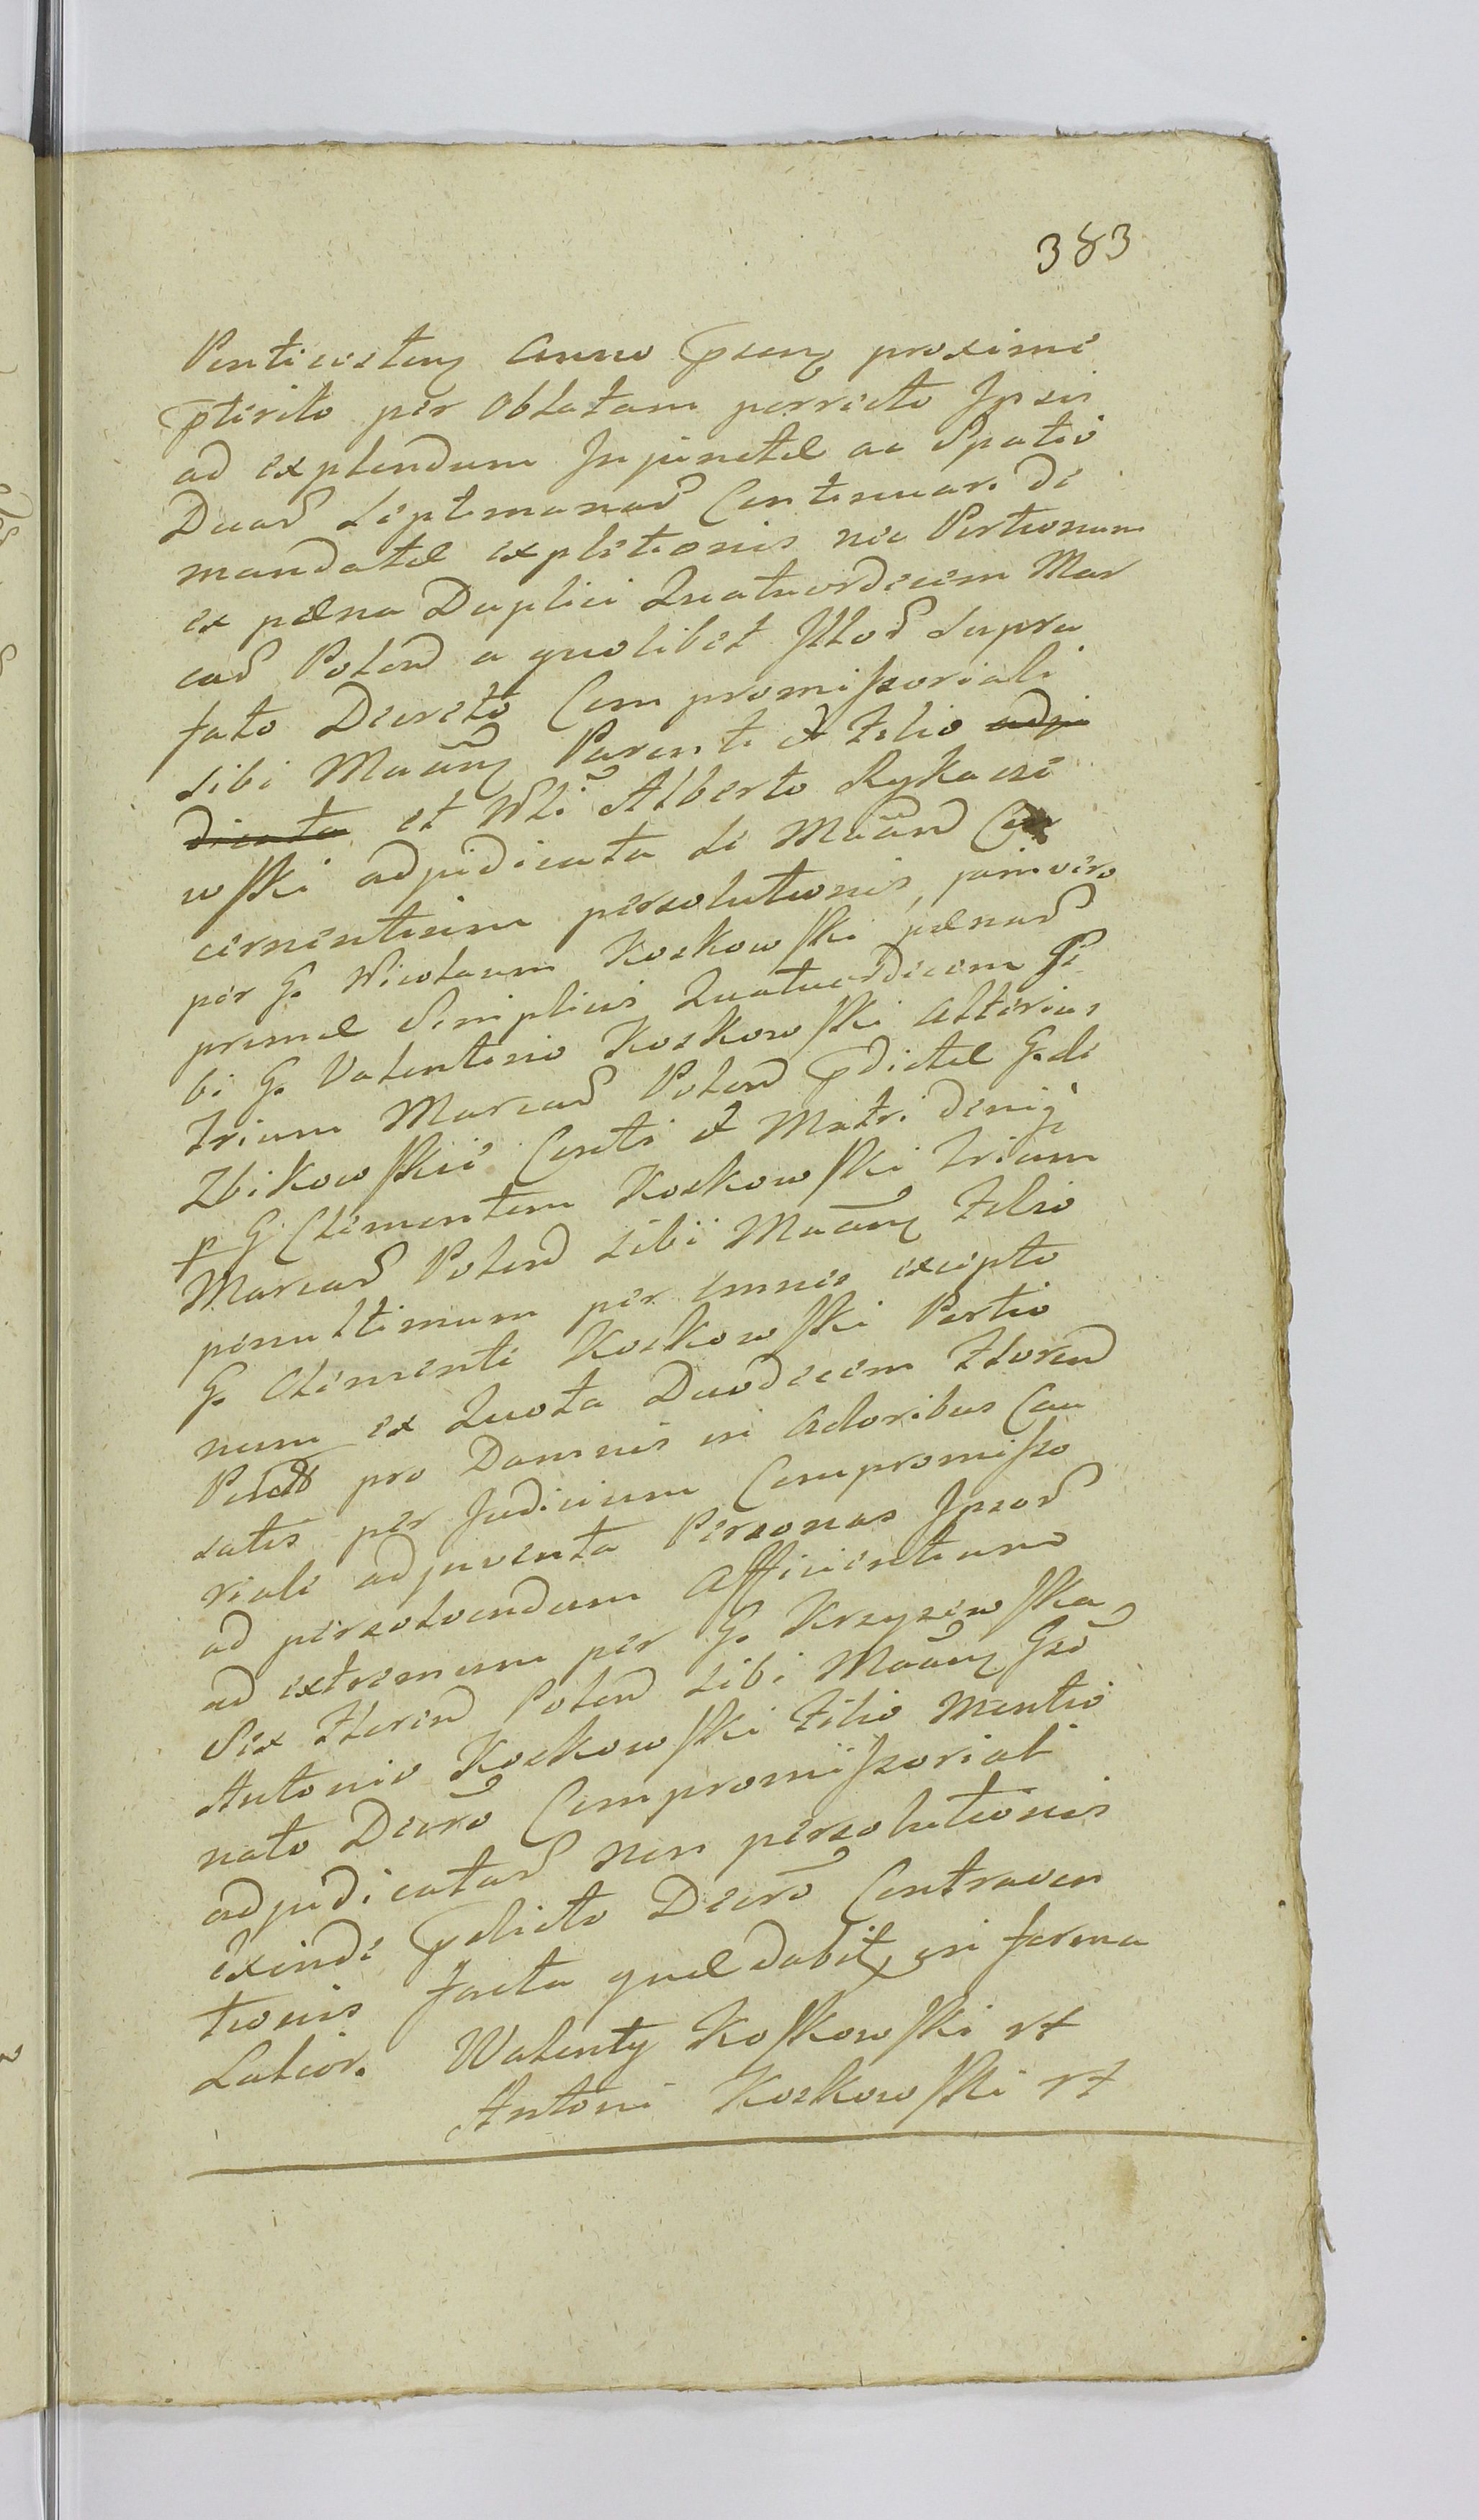 383
Penticosten Anno psen proxime
pterito per Oblatam porrecto Ipsis
ad explendum Injunctæ ac Spatio
Duar Septimanar Continuar. de
mandatæ expletionis nec Portionum
ex pœna Duplici Quatuordecem Mar
car Polon a quolibet Illor supra
fato Decreto Compromissoriali
sibi Maan Parenti et Filio adju
dicata et Wli Alberto Rykacze
wski adjudicata se Maand
cernentium persolutionis, jam vero
per G. Nicolaum Koskowski pœnar
primæ Simplicis Quatuordecem Si
bi G. Valentino Koskowski alterius
trium Marcar Polon pdictæ G. de
Zbikowskie Conti et Matri deniq
p G Clementem Koskowski Trium
Marcar Polon sibi Maan Filio
penultimum per omnes excepto
G. Clementi Koskowski Portio
num ex Quota Duodecem Floren
pro Damnis in Actoribus Cau
satis per Judicium Compromisso
riale adjuventa Personas Ipsor
ad persolvendum Afficientium
ad extremum per G. Krzyzewska
Sex Floren Polon sibi Maan Gso
Antonio Koskowski Filio Mentio
nato Decro Compromissoriali
adjudicatar non persolutionis
exinde pdicto Decro Contraven
tionis facta quæ dabit in forma
Latior. Walenty Koskowski
Antoni Koskowski